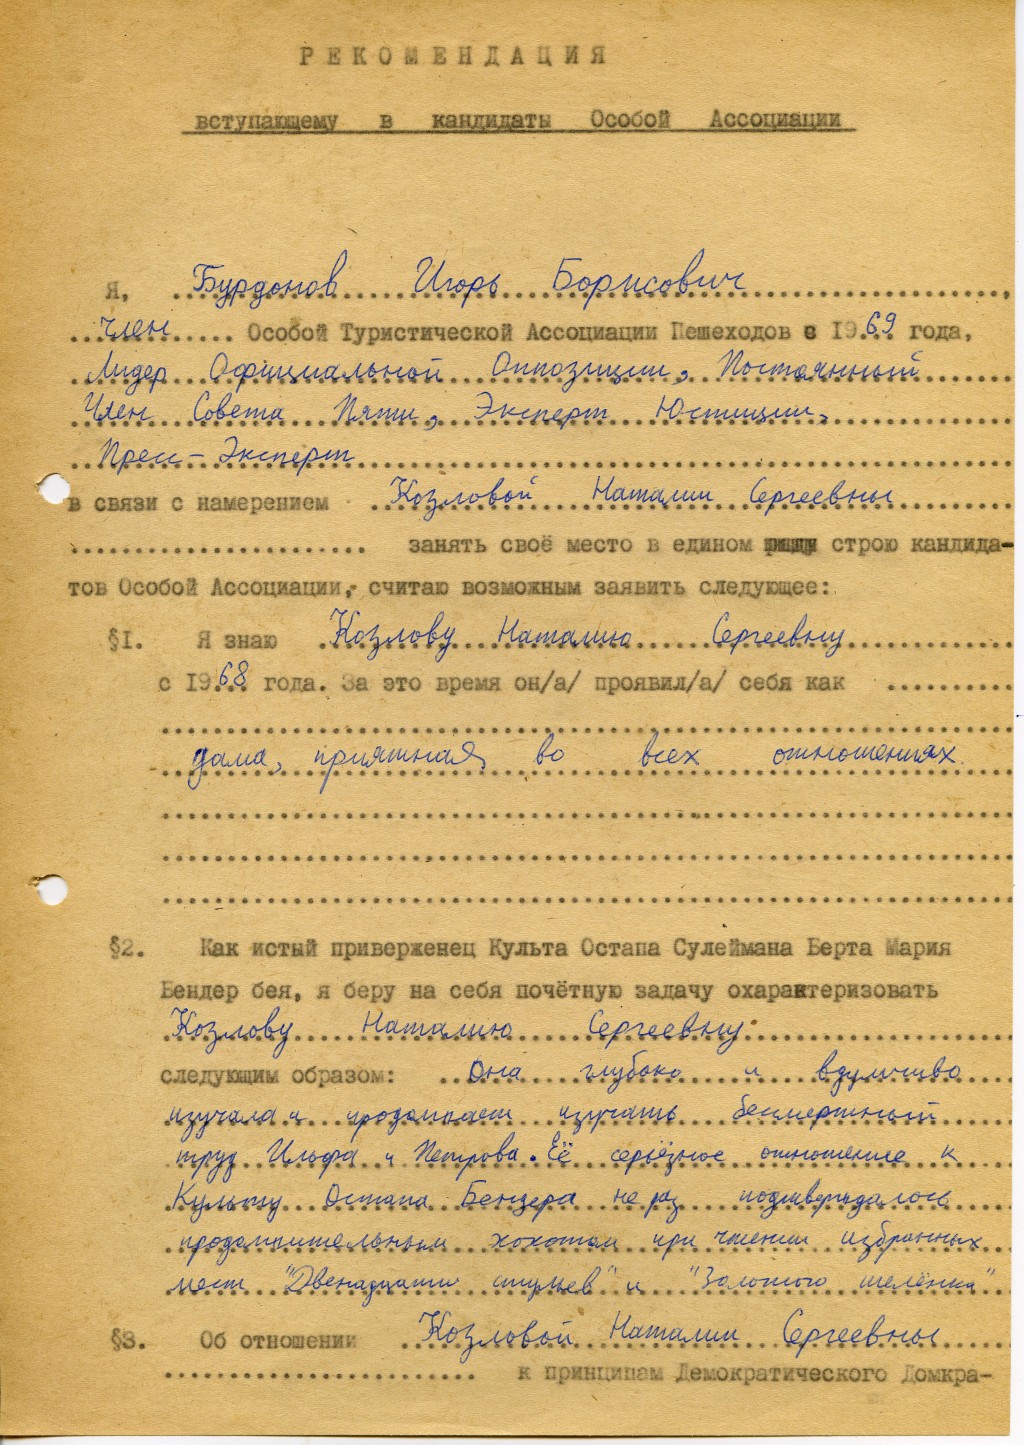 РЕКОМЕНДАЦИЯ
вступающему в кандидаты Особой Ассоциации
Я, Бурдонов Игорь Борисович,
член Особой Туристической Ассоциации Пешеходов с 1969 года,
Лидер Официальной Оппозиции, Постоянный
Член Совета Пяти, Эксперт Юстиции,
Пресс-Эксперт
в связи с намерением Козловой Наталии Сергеевны
занять своё место в едином строю кандида-
тов Особой Ассоциации, считаю возможным заявить следующее:
§1. Я знаю Козлову Наталию Сергеевну
с 1968 года. За это время он/а/ проявил/а/ себя как
дама, приятная во всех отношениях
§2. Как истый приверженец Культа Остапа Сулеймана Берта Мария
Бендер бея, я беру на себя почётную задачу охарактеризовать
Козлову Наталию Сергеевну
следующим образом: Она глубоко и вдумчиво
изучала и продолжает изучать бессмертный
труд Ильфа и Петрова. Её серьёзное отношение к
Культу Остапа Бендера не раз подтверждалось
продолжительным хохотом при чтении избранных
мест "Двенадцати стульев" и "Золотого телёнка"
§3. Об отношении Козловой Наталии Сергеевны
к принципам Демократического Домкра-